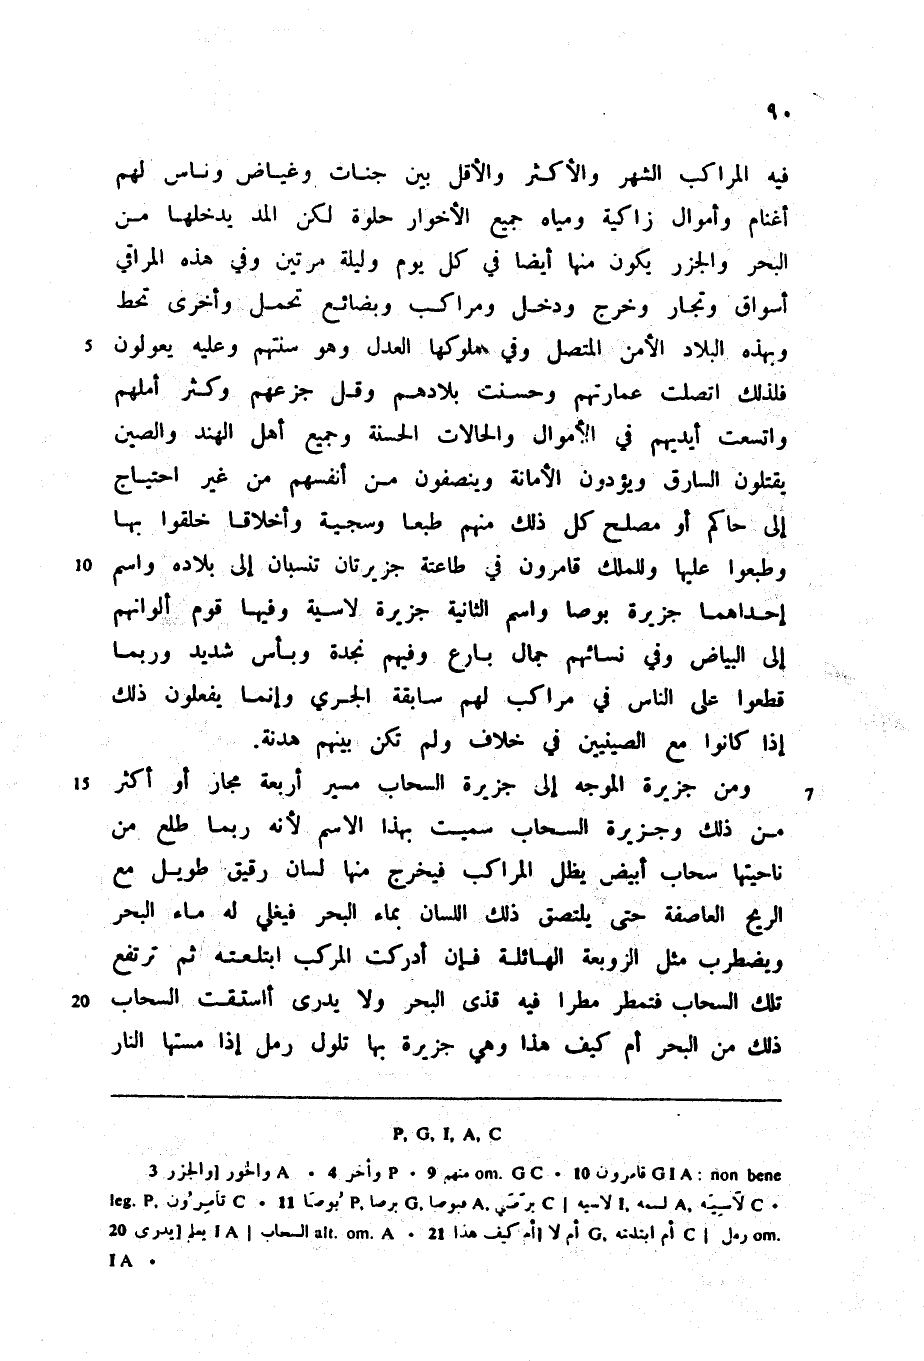 ٩٠
فيه المراكب الشهر والأكثر والأقل بين جنات وغياض وناس لهم
أغنام وأموال زاكية ومياه جميع الأخوار حلوة لكن المد يدخلها من
البحر والجزر يكون منها أيضا في كل يوم وليلة مرتين وفي هذه المراقي
أسواق وتجار وخرج ودخل ومراكب وبضائع تحمل وأخرى تحط
وبهذه البلاد الأمن المتصل وفي ملوكها العدل وهو سنتهم وعليه يعولون 5
فلذلك اتصلت عمارتهم وحسنت بلادهم وقل جزعهم وكثر أملهم
واتسعت أيديهم في الأموال والحالات الحسنة وجميع أهل الهند والصين
يقتلون السارق ويؤدون الأمانة وينصفون من أنفسهم من غير احتياج
إلى حاكم أو مصلح كل ذلك منهم طبعا وسجية وأخلاقا خلقوا بها
وطبعوا عليها وللملك قامرون في طاعتة جزيرتان تنسبان إلى بلاده واسم 10
إحداهما جزيرة بوصا واسم الثانية جزيرة لاسية وفيها قوم ألوانهم
إلى البياض وفي نسائهم جمال بارع وفيهم نجدة وبأس شديد وربما
قطعوا على الناس في مراكب لهم سابقة الجري وإنما يفعلون ذلك
إذا كانوا مع الصينيين في خلاف ولم تكن بينهم هدنة.
7 ومن جزيرة الموجه إلى جزيرة السحاب مسير أربعة مجار أو أكثر 15
من ذلك وجزيرة السحاب سميت بهذا الاسم لأنه ربما طلع من
ناحيتها سحاب أبيض يظل المراكب فيخرج منها لسان رقيق طويل مع
الريح العاصفة حتى يلتصق ذلك اللسان بماء البحر فيغلي له ماء البحر
ويضطرب مثل الزوبعة الهائلة فإن أدركت المركب ابتلعته ثم ترتفع
تلك السحاب فتمطر مطرا فيه قذى البحر ولا يدرى أاستقت السحاب 20
ذلك من البحر أم كيف هذا وهي جزيرة بها تلول رمل إذا مستها النار
P, G, I, A, C
3 والجزر] والخور A • 4 وأخر P • 9 منهم om. G C • 10 قامرون G I A : non bene
leg. P, تأمرون C • 11 بوصا P, برصا G, A, C | لاسية I, لسه A, C •
20 يدرى] I A | السحاب alt. om. A • 21 أم كيف هذا] أم لا G, أم ابتلعته C | رمل om.
I A •